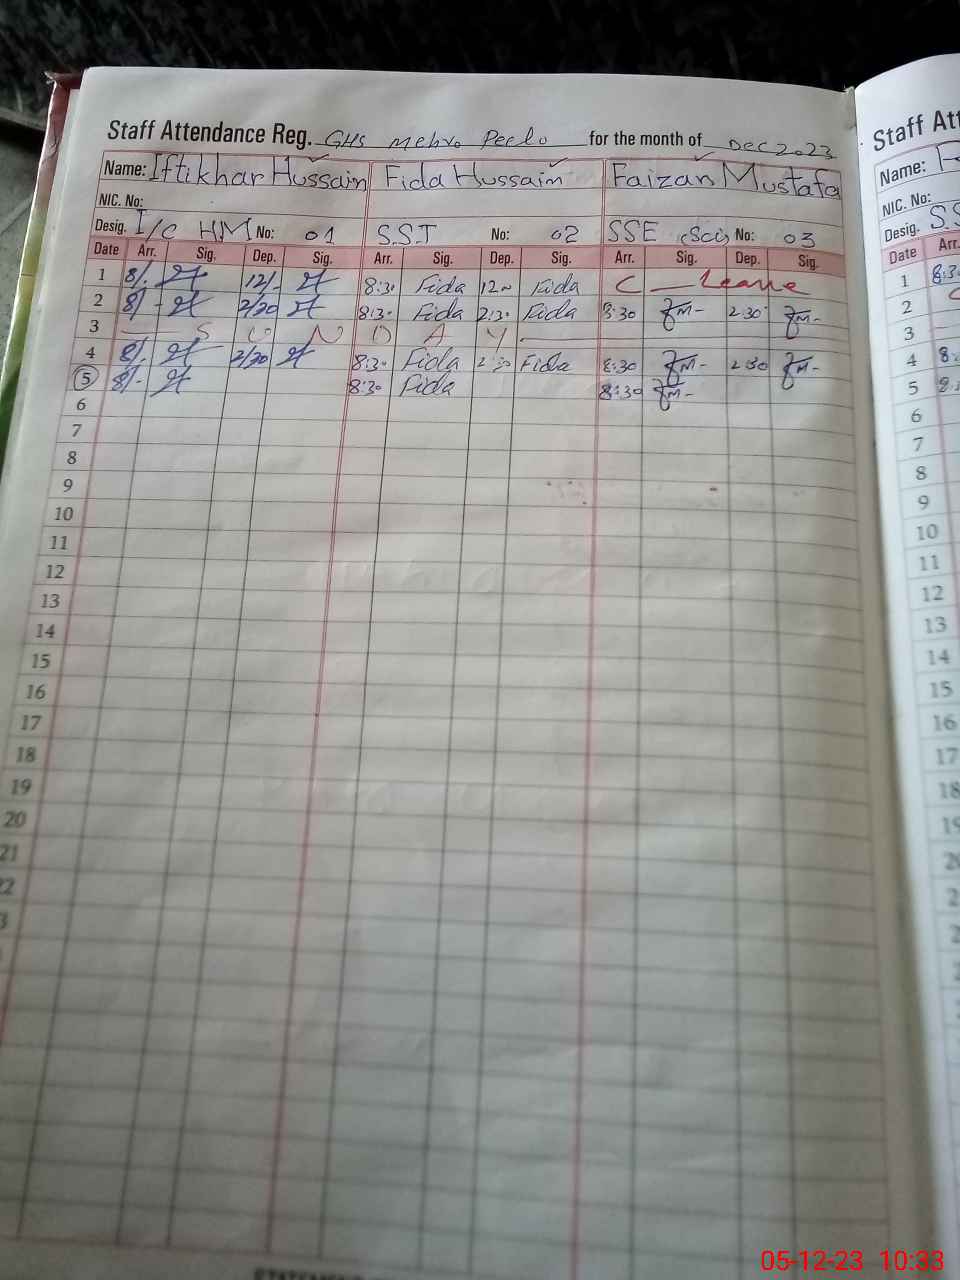 Staff Attendance Reg. GHS Mehro Peelo for the month of Dec 2023
Name: Iftikhar Hussain Fida Hussain Faizan Mustafa
NIC. No:
Desig. I/C HM No: 01 S.S.T No: 02 SSE (Sci) No: 03
Date Arr. Sig. Dep. Sig. Arr. Sig. Dep. Sig. Arr. Sig. Dep. Sig.
1 8/- 12/- 8:30 Fida 12 Fida C — Leave
2 8/- 2/20 8:30 Fida 2:30 Fida 8:30 FM- 2:30 FM-
3 S U N D A Y
4 8/- 2/20 8:30 Fida 2:30 Fida 8:30 FM- 2:30 FM-
5 8/- 8:30 Fida 8:30 FM-
6
7
8
9
10
11
12
13
14
15
16
17
18
19
20
21
22
3
Staff Att
Name:
NIC. No:
Desig. SS
Date Arr.
1 8:3
2
3
4 8:
5 8:
6
7
8
9
10
11
12
13
14
15
16
17
18
19
05-12-23 10:33